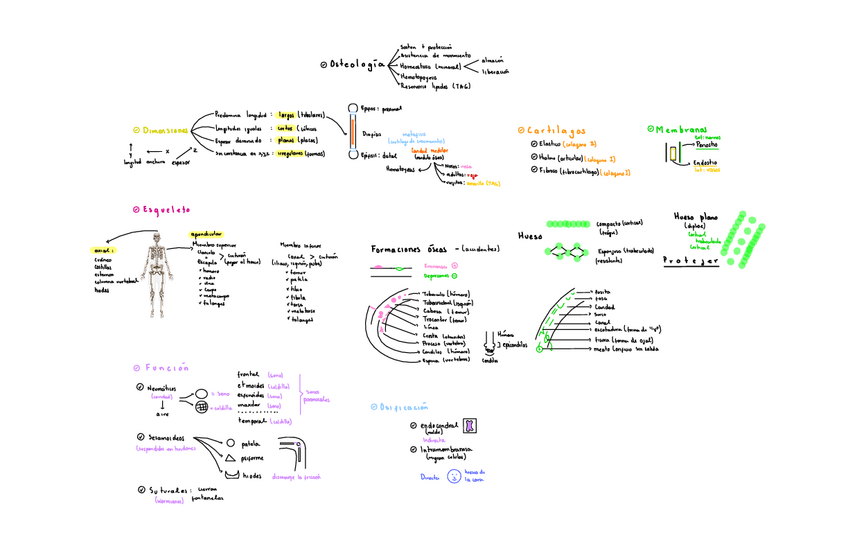 Osteología
Sosten + protección
Asistencia de movimiento
Homeostasis (mineral)
almacén
liberación
Hematopoyesis
Reservorio lípidos (TAG)
Dimensiones
Predomina longitud : largos (tubulares)
Longitudes iguales : cortos (cúbicos)
Espesor disminuido : planos (placas)
irregulares (formas)
x
y
z
longitud anchura espesor
Epífisis : proximal
Diáfisis
Epífisis : distal
metáfisis
(cartílago de crecimiento)
Cavidad medular
(médula ósea)
Hematopoyesis
adultos : roja
viejitos : amarilla (TAG)
Cartílagos
Elastico (colageno II)
Hialino (articular) (colageno II)
Fibroso (fibrocartílago) (colageno I)
Membranas
Periostio
Endostio
Esqueleto
axial :
cráneo
costillas
esternon
columna vertebral
hiodes
apendicular
Miembro superior
clavicula
+
escapula
> cinturón
húmero
radio
ulna
carpo
metacarpo
falanges
Miembro inferior
coxal > cinturón
(iliaco, isquion, pubis)
femur
patela
tibia
fíbula
tarso
metatarso
falanges
Formaciones óseas - (accidentes)
Eminencias
Depresiones
Tuberculo (húmero)
Tuberosidad (isquion)
Cabeza (femur)
Trocanter (femur)
Línea
Cresta
Proceso (vertebra)
Condilos (húmero)
Espina (vertebras)
Húmero
epicondilos
condilo
Hueso
Compacto (cortical)
(rígido)
Esponjoso (trabeculado)
(resistente)
Hueso plano
(diploe)
Cortical
trabeculado
Cortical
Proteger
fosita
fosa
Cavidad
surco
canal
escotadura (forma de "U")
foramen (forma de ojal)
meato (orificio sin salida)
Función
Neumáticos
(cavidad)
aire
= seno
= celdilla
frontal (seno)
etmoides (celdilla)
esfenoides (seno)
maxilar (seno)
temporal (celdilla)
senos
paranasales
Sesamoideos
(suspendidos en tendones)
patela
pisiforme
hiodes
disminuye la fricción
Suturales : cierran
(wormianos) fontanelas
Osificación
endocondral
(molde)
Indirecta
Intramembranosa
(migran celulas)
Directa
huesos de
la cara